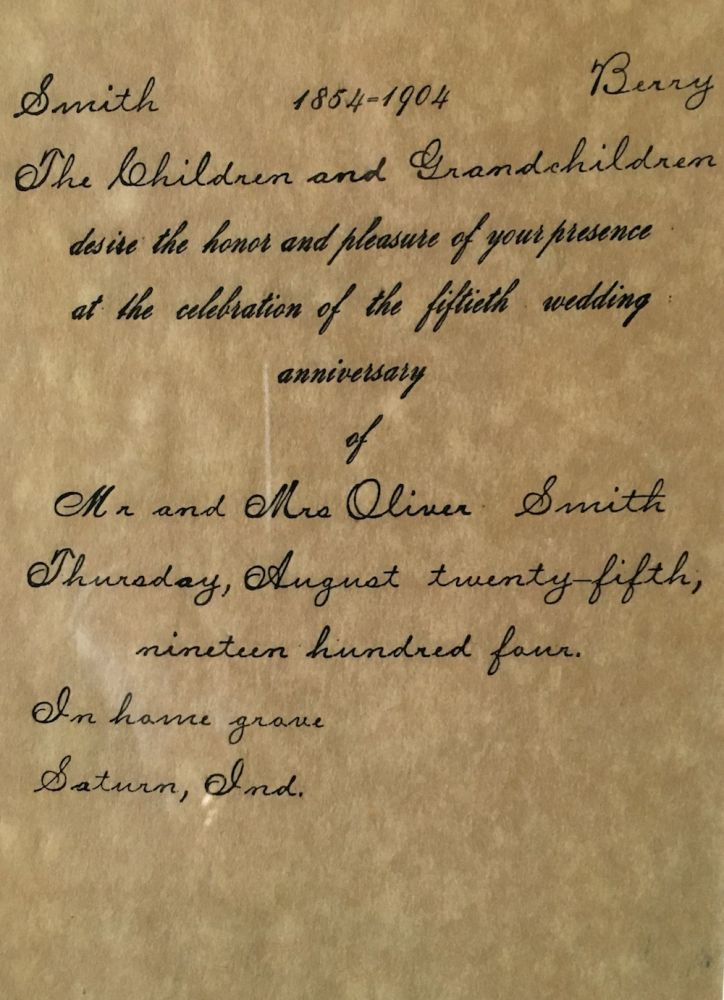 Smith 1854-1904 Berry
The Children and Grandchildren
desire the honor and pleasure of your presence
at the celebration of the fiftieth wedding
anniversary
of
Mr and Mrs Oliver Smith
Thursday, August twenty-fifth,
nineteen hundred four.
In home grove
Saturn, Ind.